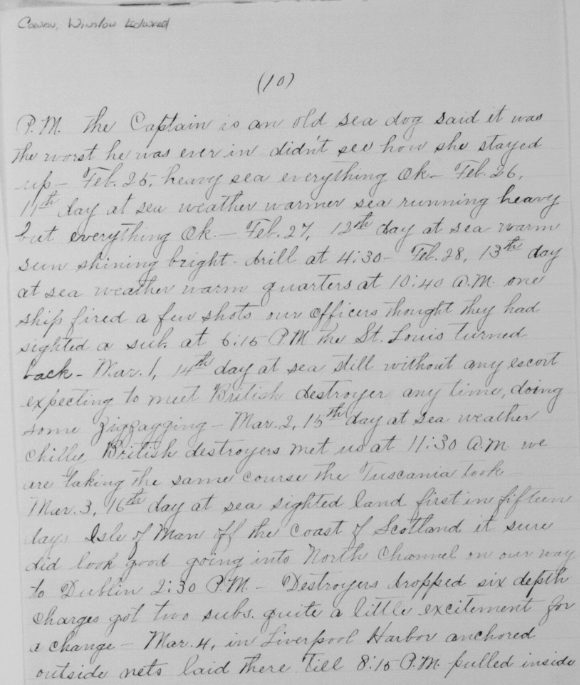 Cowan, Winslow Edward
(10)
P.M. The Captain is an old sea dog said it was
the worst he was ever in didn't see how she stayed
up - Feb. 25, heavy sea everything Ok - Feb. 26,
11th day at sea weather warmer sea running heavy
but everything Ok - Feb. 27, 12th day at sea warm
sun shining bright - drill at 4:30 - Feb. 28, 13th day
at sea weather warm quarters at 10:40 A.M. one
ship fired a few shots our officers thought they had
sighted a sub. at 6:15 P.M the St. Louis turned
back - Mar. 1, 14th day at sea still without any escort
expecting to meet British destroyer any time, doing
some zigzagging - Mar. 2, 15th day at sea weather
chilly British destroyers met us at 11:30 A.M. we
are taking the same course the Tuscania took
Mar. 3, 16th day at sea sighted land first in fifteen
days Isle of Man off the coast of Scotland it sure
did look good going into North Channel on our way
to Dublin 2:30 P.M. - Destroyers dropped six depth
charges got two subs. quite a little excitement for
a change - Mar. 4, in Liverpool Harbor anchored
outside nets laid there till 8:15 P.M. pulled inside